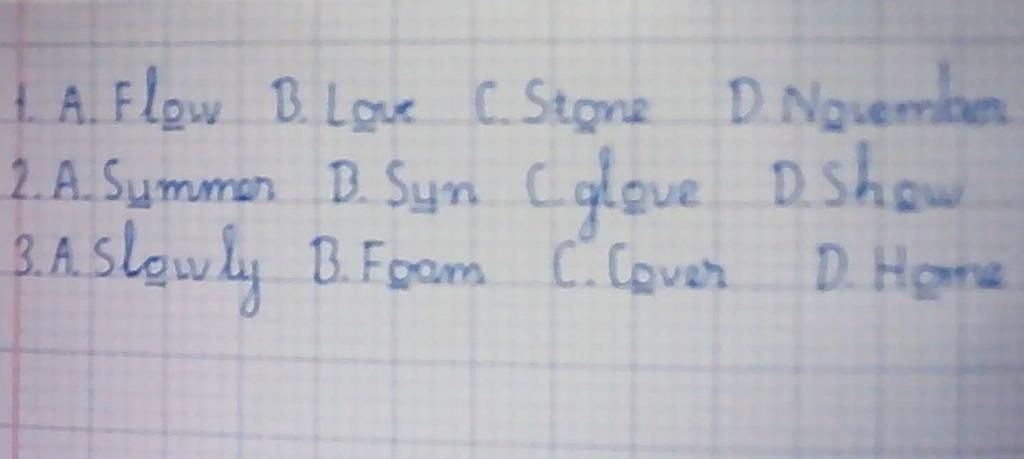 1. A. Flow B. Love C. Stone D. November
2. A. Summer B. Sun C. glove D. Show
3. A. Slowly B. Foam C. Cover D. Home